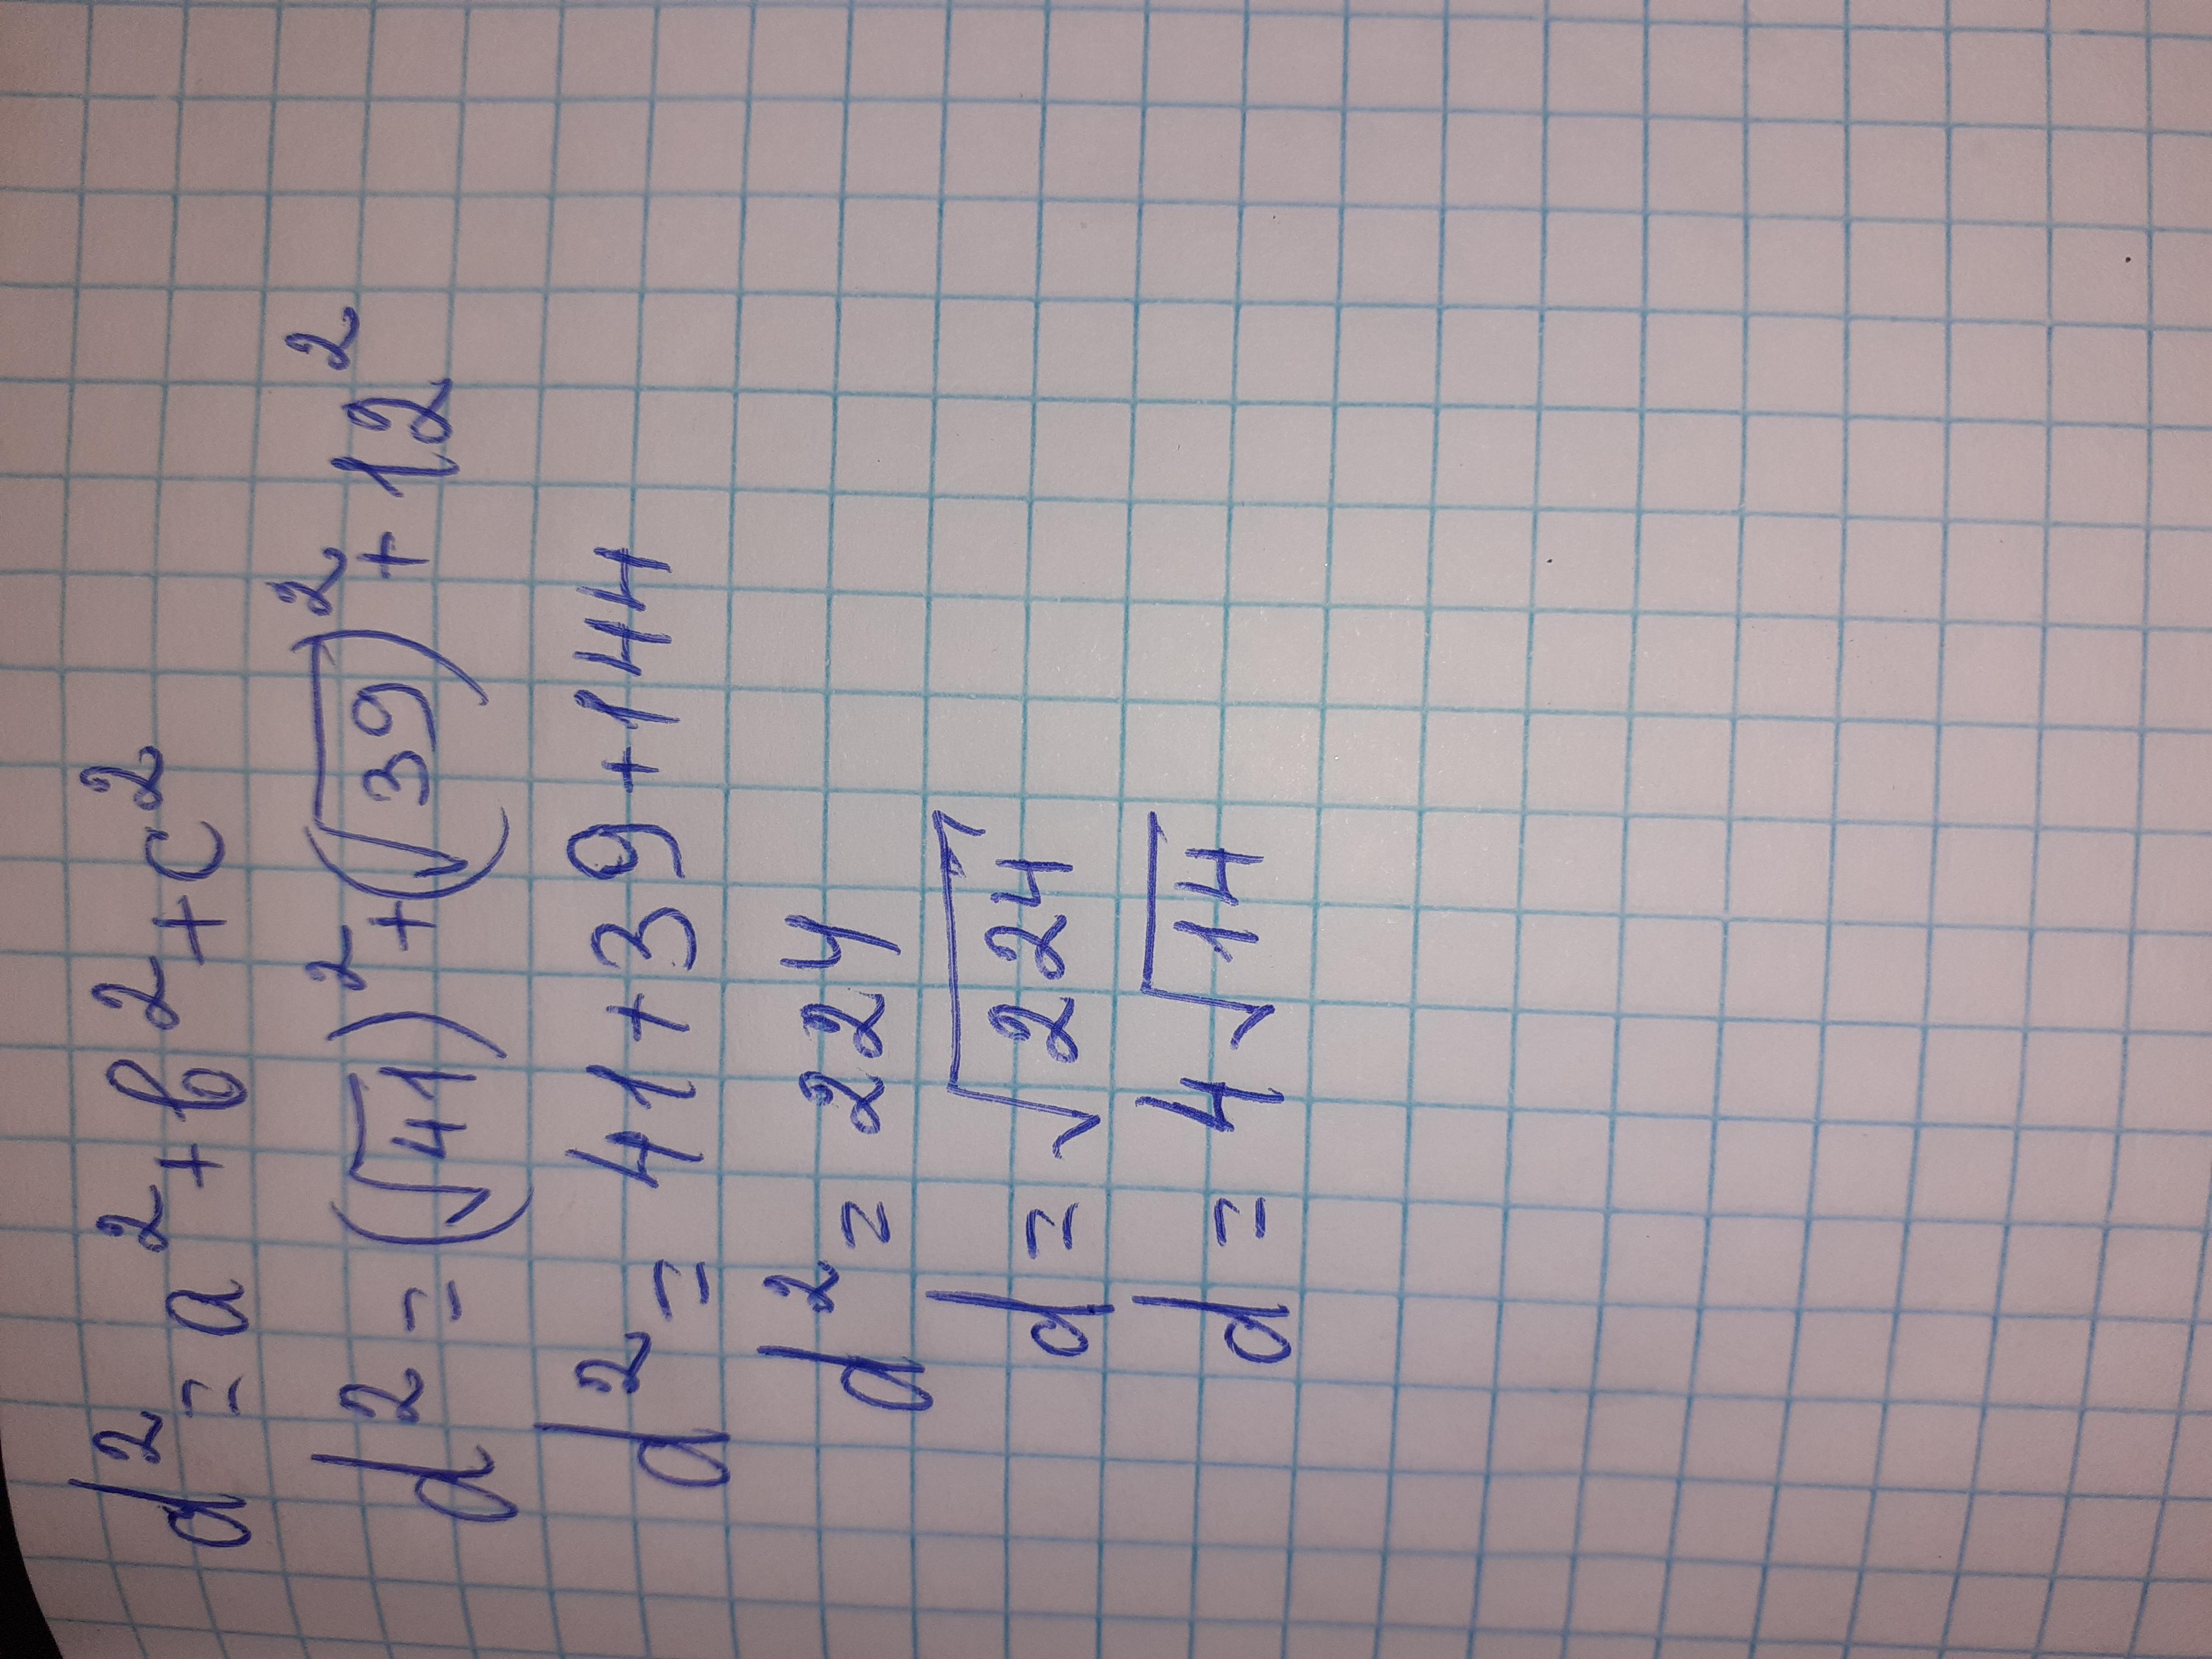 d² = a² + b² + c²
d² = (√41)² + (√39)² + 12²
d² = 41 + 39 + 144
d² = 224
d = √224
d = 4√14